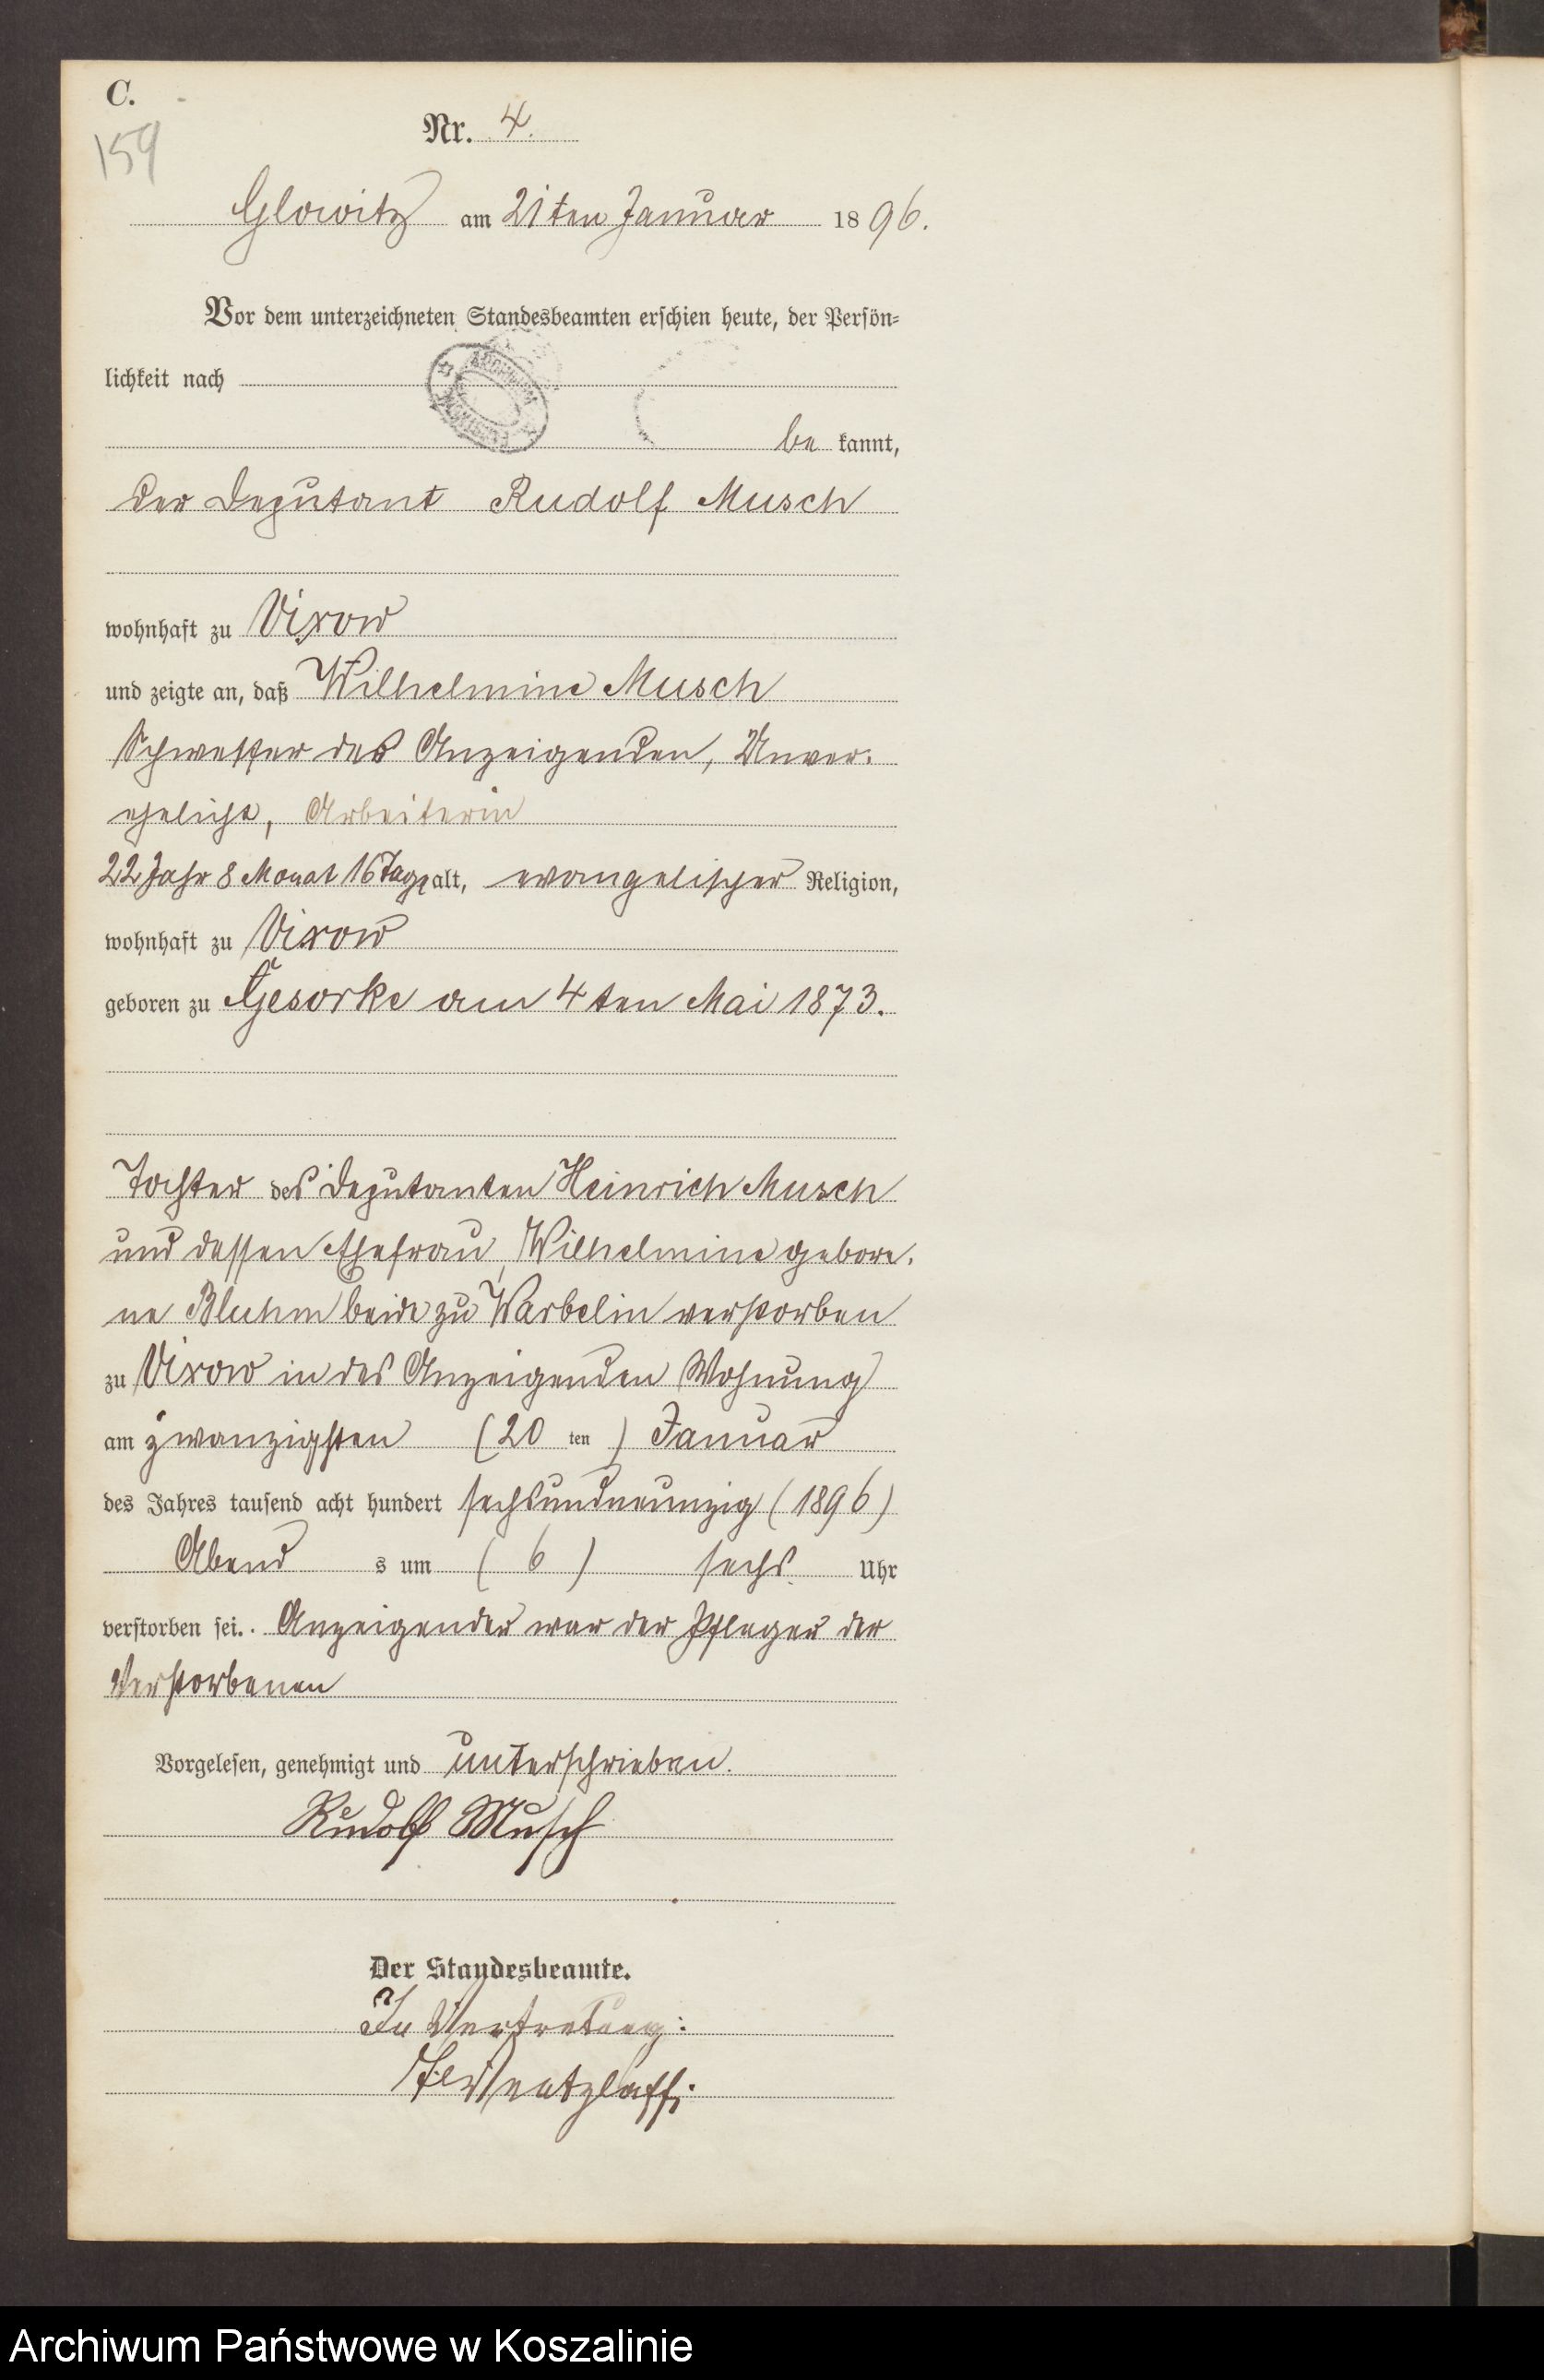 C.
159
Nr. 4.
Glowitz am 21ten Januar 1896.
Vor dem unterzeichneten Standesbeamten erschien heute, der Persön-
lichkeit nach
be kannt,
der Deputant Rudolf Musch
wohnhaft zu Vixow
und zeigte an, daß Wilhelmine Musch
Schwester des Anzeigenden, Unver-
ehelicht, Arbeiterin
22 Jahr 8 Monat 16 Tage alt, evangelischer Religion,
wohnhaft zu Vixow
geboren zu Gesorke am 4ten Mai 1873.
Tochter des Deputanten Heinrich Musch
und dessen Ehefrau, Wilhelmine gebore-
ne Bluhm beide zu Warbelin verstorben
zu Vixow in des Anzeigenden Wohnung
am zwanzigsten (20 ten) Januar
des Jahres tausend acht hundert sechsundneunzig (1896)
Abend s um (6) sechs Uhr
verstorben sei. Anzeigender war der Pfleger der
Verstorbenen
Vorgelesen, genehmigt und unterschrieben.
Rudolf Musch
Der Standesbeamte.
In Vertretung:
Archiwum Państwowe w Koszalinie